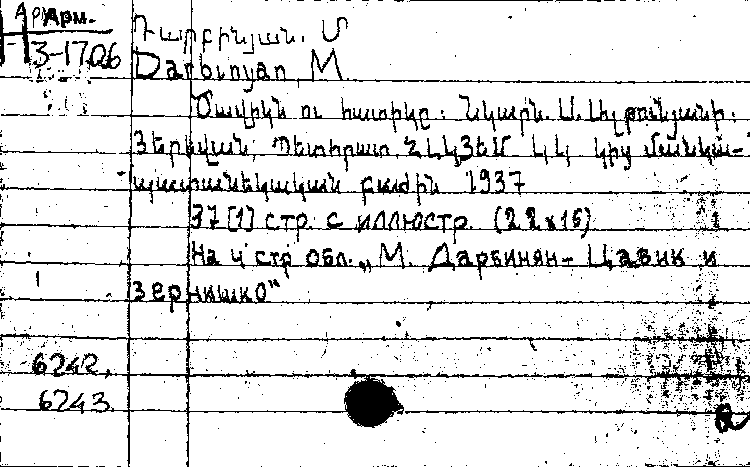 Арм.
3-1706
Դարբինյան. Մ
Darbinyan M
Ծավիկն ու հատիկը: Նկարն. Ա.
Յերևան, Պետհրատ, ՀԼԿՅԵՄ ԿԿ կից մանկա-
պատանեկական բաժին 1937
37 [1] стр. с иллюстр. (22x15)
На 4 стр обл. „М. Дарбинян- Цавик и
зернишко"
6242,
6243